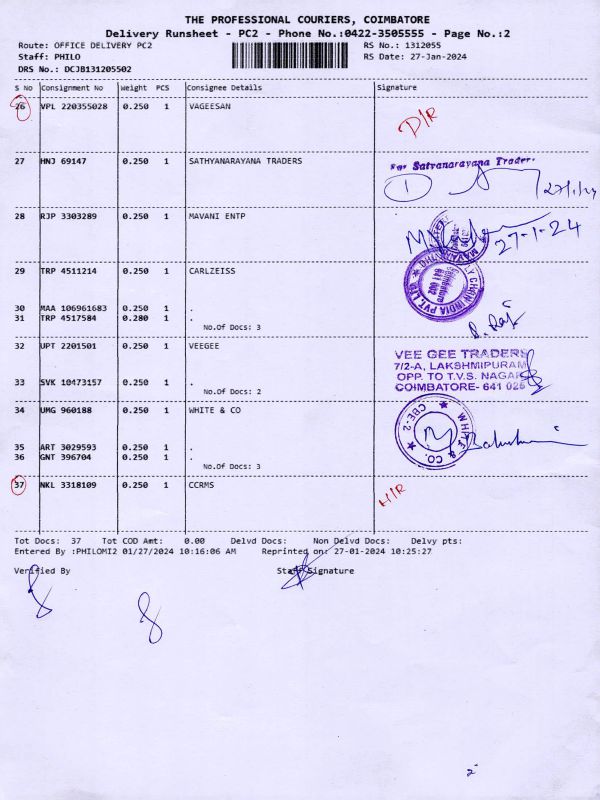 THE PROFESSIONAL COURIERS, COIMBATORE
Delivery Runsheet - PC2 - Phone No.:0422-3505555 - Page No.:2
Route: OFFICE DELIVERY PC2 RS No.: 1312055
Staff: PHILO RS Date: 27-Jan-2024
DRS No.: DCJB131205502
S No Consignment No Weight PCS Consignee Details Signature
26 VPL 220355028 0.250 1 VAGEESAN D/R
27 HNJ 69147 0.250 1 SATHYANARAYANA TRADERS
For Satyanarayana Traders
1 27/1/24
28 RJP 3303289 0.250 1 MAVANI ENTP
27-1-24
29 TRP 4511214 0.250 1 CARLZEISS
30 MAA 106961683 0.250 1 .
31 TRP 4517584 0.280 1 .
No.Of Docs: 3
32 UPT 2201501 0.250 1 VEEGEE
VEE GEE TRADERS
7/2-A, LAKSHMIPURAM
OPP. TO T.V.S. NAGAR
COIMBATORE- 641 025
33 SVK 10473157 0.250 1 .
No.Of Docs: 2
34 UMG 960188 0.250 1 WHITE & CO
WHITE & CO. CBE-2
35 ART 3029593 0.250 1 .
36 GNT 396704 0.250 1 .
No.Of Docs: 3
37 NKL 3318109 0.250 1 CCRMS H/R
Tot Docs: 37 Tot COD Amt: 0.00 Delvd Docs: Non Delvd Docs: Delvy pts:
Entered By :PHILOMI2 01/27/2024 10:16:06 AM Reprinted on: 27-01-2024 10:25:27
Verified By Staff Signature
2